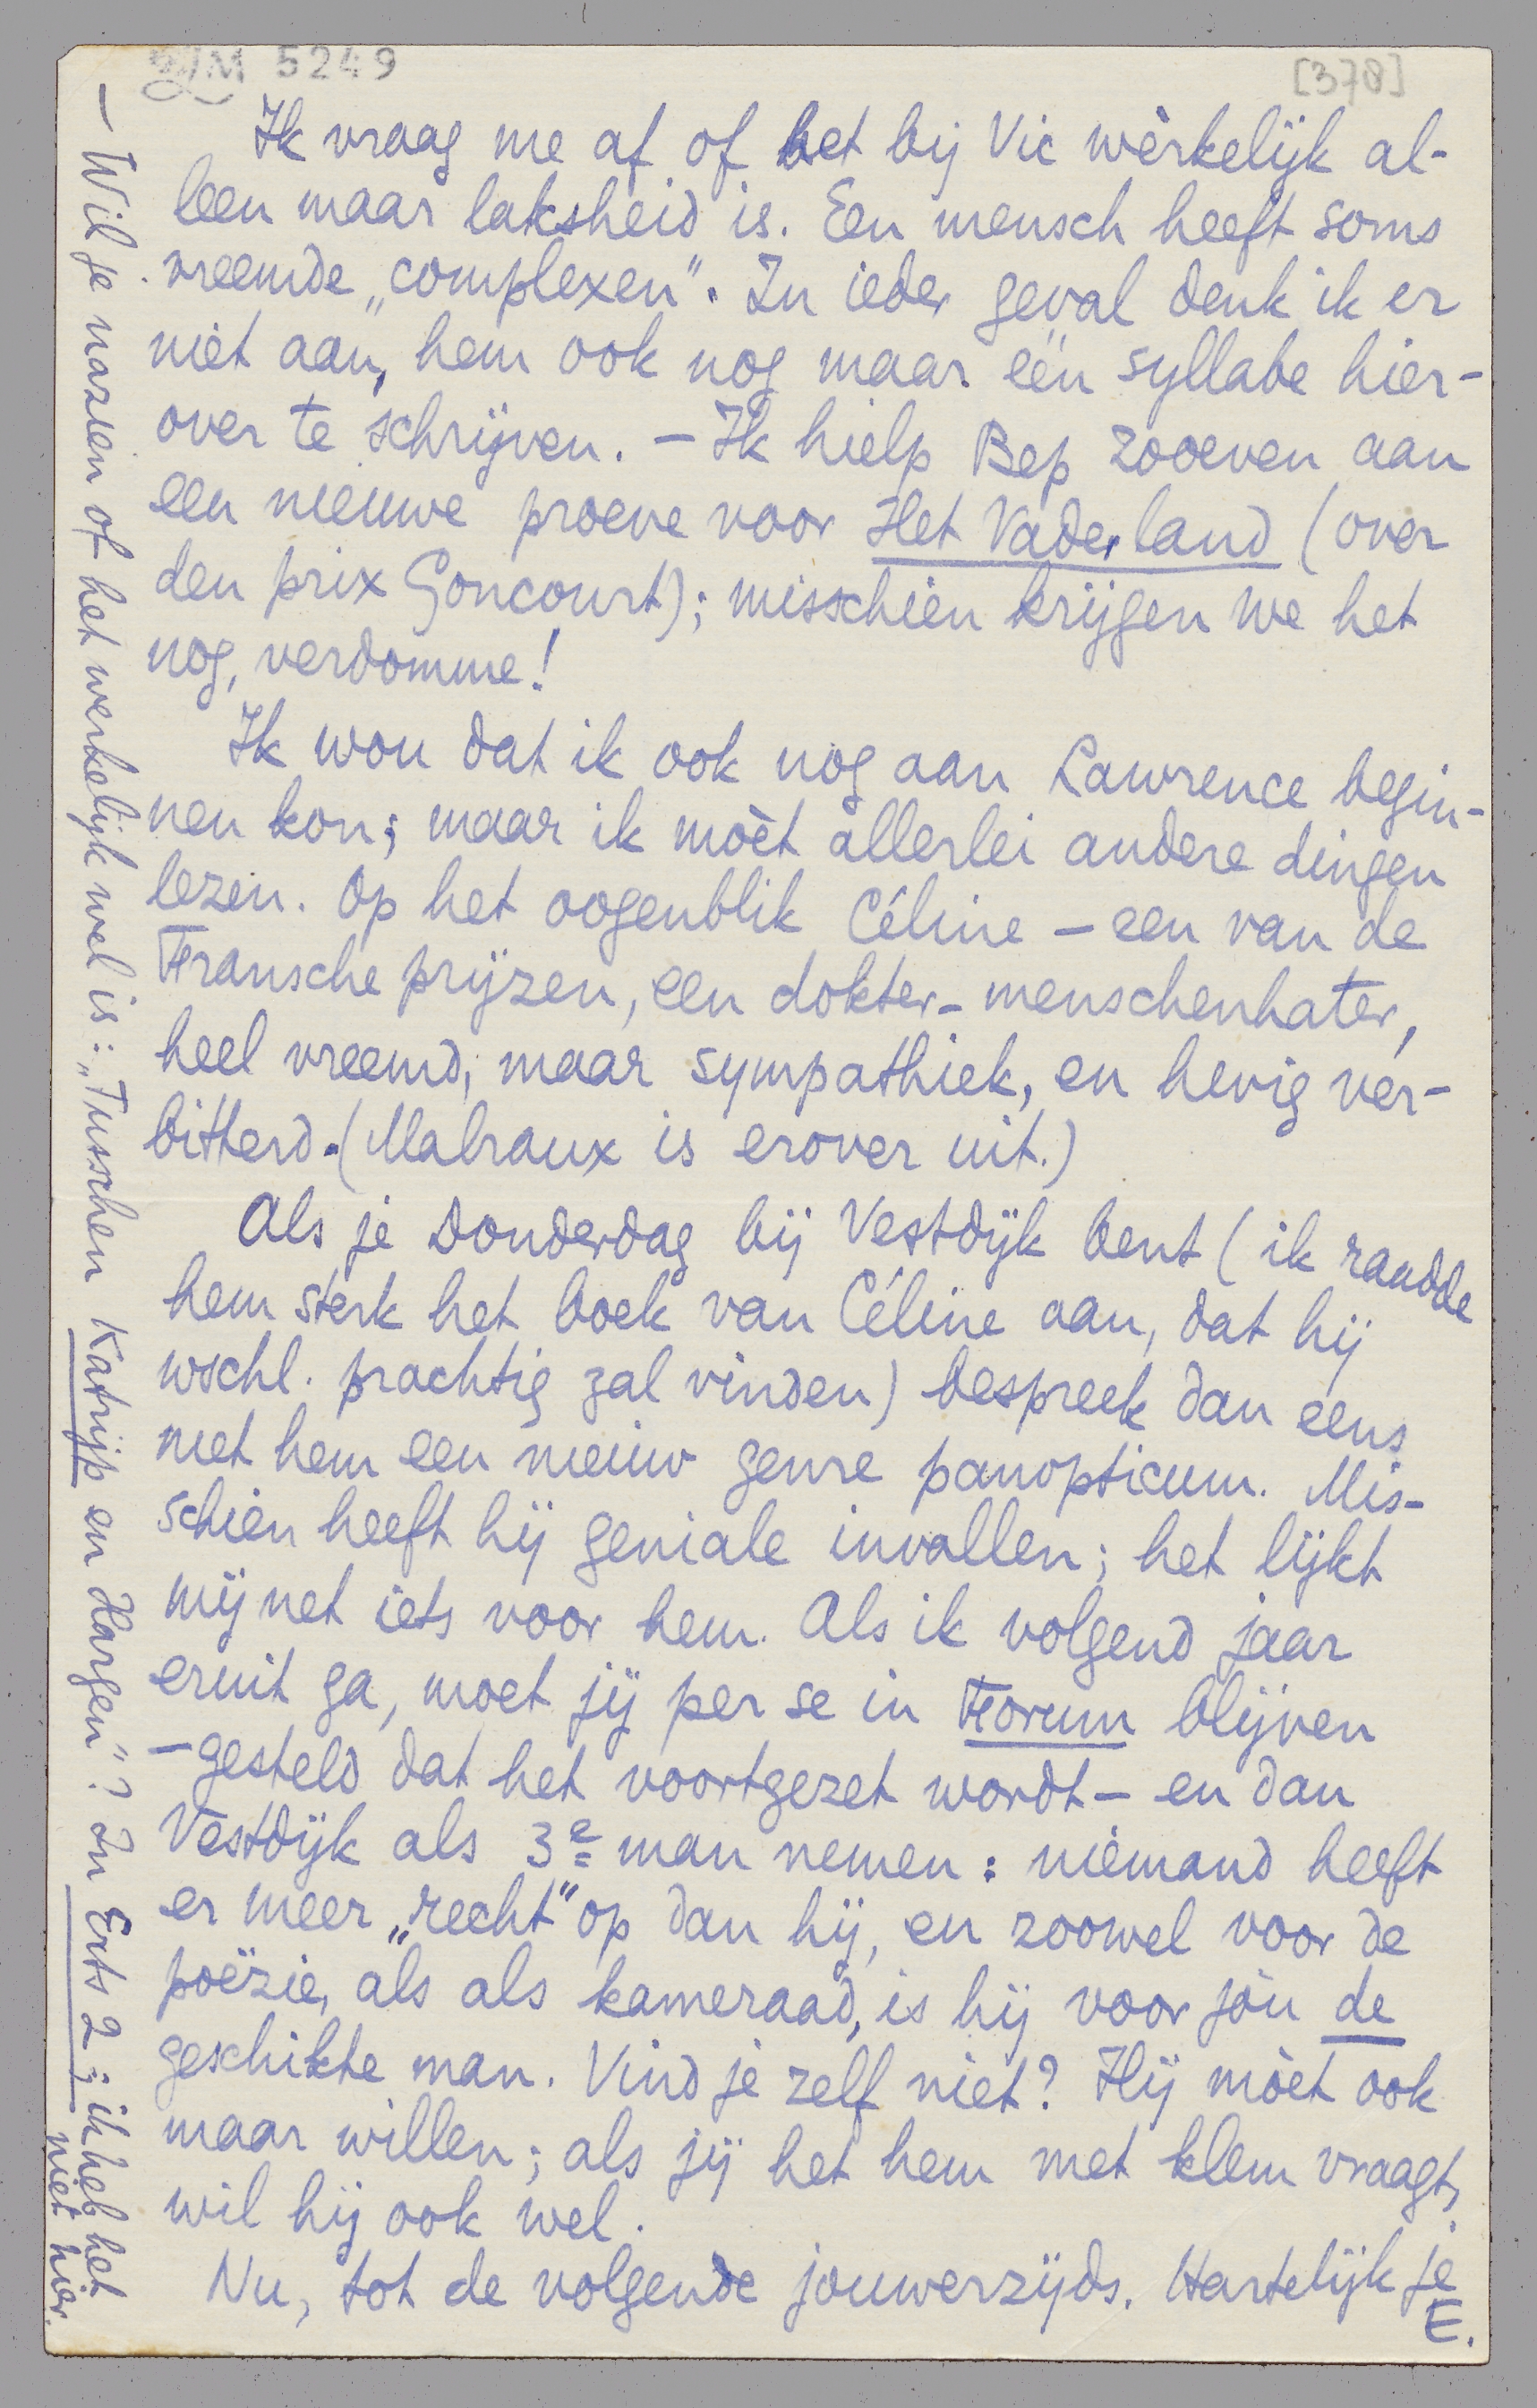 M 5249
[378]
Ik vraag me af of het bij Vic wèrkelijk al-
leen maar laksheid is. Een mensch heeft soms
vreemde „complexen”. In ieder geval denk ik er
niet aan, hem ook nog maar één syllabe hier-
over te schrijven. – Ik hielp Bep zooeven aan
een nieuwe proeve voor Het Vaderland (over
den prix Goncourt); misschien krijgen we het
nog, verdomme!
Ik wou dat ik ook nog aan Lawrence begin-
nen kon; maar ik mòèt allerlei andere dingen
lezen. Op het oogenblik Céline – een van de
Fransche prijzen, een dokter-menschenhater,
heel vreemd, maar sympathiek, en hevig ver-
bitterd. (Malraux is erover uit.)
Als je Donderdag bij Vestdijk bent (ik raadde
hem sterk het boek van Céline aan, dat hij
wschl. prachtig zal vinden) bespreek dan eens
met hem een nieuw genre panopticum. Mis-
schien heeft hij geniale invallen; het lijkt
mij net iets voor hem. Als ik volgend jaar
eruit ga, moet jij per se in Forum blijven
– gesteld dat het voortgezet wordt – en dan
Vestdijk als 3e man nemen: niemand heeft
er meer „recht” op dan hij, en zoowel voor de
poëzie, als als kameraad, is hij voor jòu de
geschikte man. Vind je zelf niet? Hij mòèt ook
maar willen; als jij het hem met klem vraagt,
wil hij ook wel.
Nu, tot de volgende jouwerzijds. Hartelijk je
E.
– Wil je nazien of het werkelijk wel is: „Tusschen Katrijp en Hargen”? In Erts 2; ik heb het
niet hier.